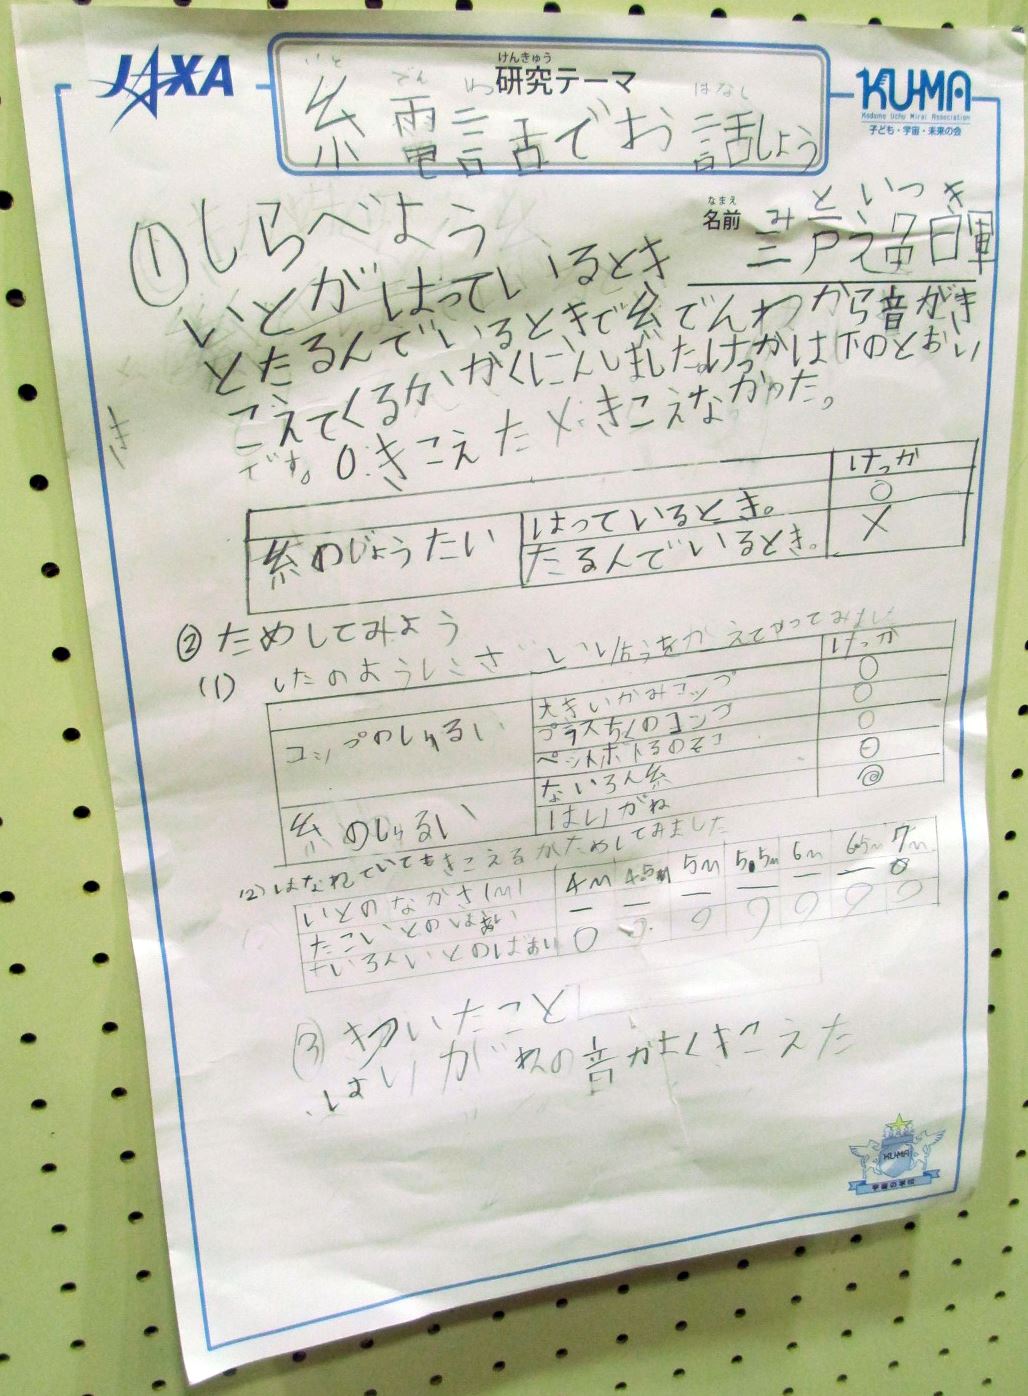 JAXA
けんきゅう
研究テーマ
KU-MA
Kodomo Uchu Mirai Association
子ども・宇宙・未来の会
いと でん わ はなし
糸電話でお話しよう
なまえ
名前
みといつき
三戸
①しらべよう
いとがはっているとき
とたるんでいるときで糸でんわから音がき
こえてくるか、かくにんしました。けっかは下のとおい
です。O:きこえた X:きこえなかった。
けっか
糸のじょうたい はっているとき。 ○
たるんでいるとき。 ×
②ためしてみよう
(1) したのように
けっか
コップのしゅるい 大きいかみコップ ○
プラスちくのコップ ○
ペットボトるのそこ ○
糸のしゅるい ないろん糸 ○
はりがね ◎
(2) はなれていてもきこえるかためしてみました
いとのながさ(m) 4m 4.5m 5m 5.5m 6m 6.5m 7m
たこいとのばあい — — — — — —
ないろんいとのばあい ○ ○ ○ ○ ○ ○ ○
③きづいたこと
はりがねの音がよくきこえた
KU-MA
宇宙の学校